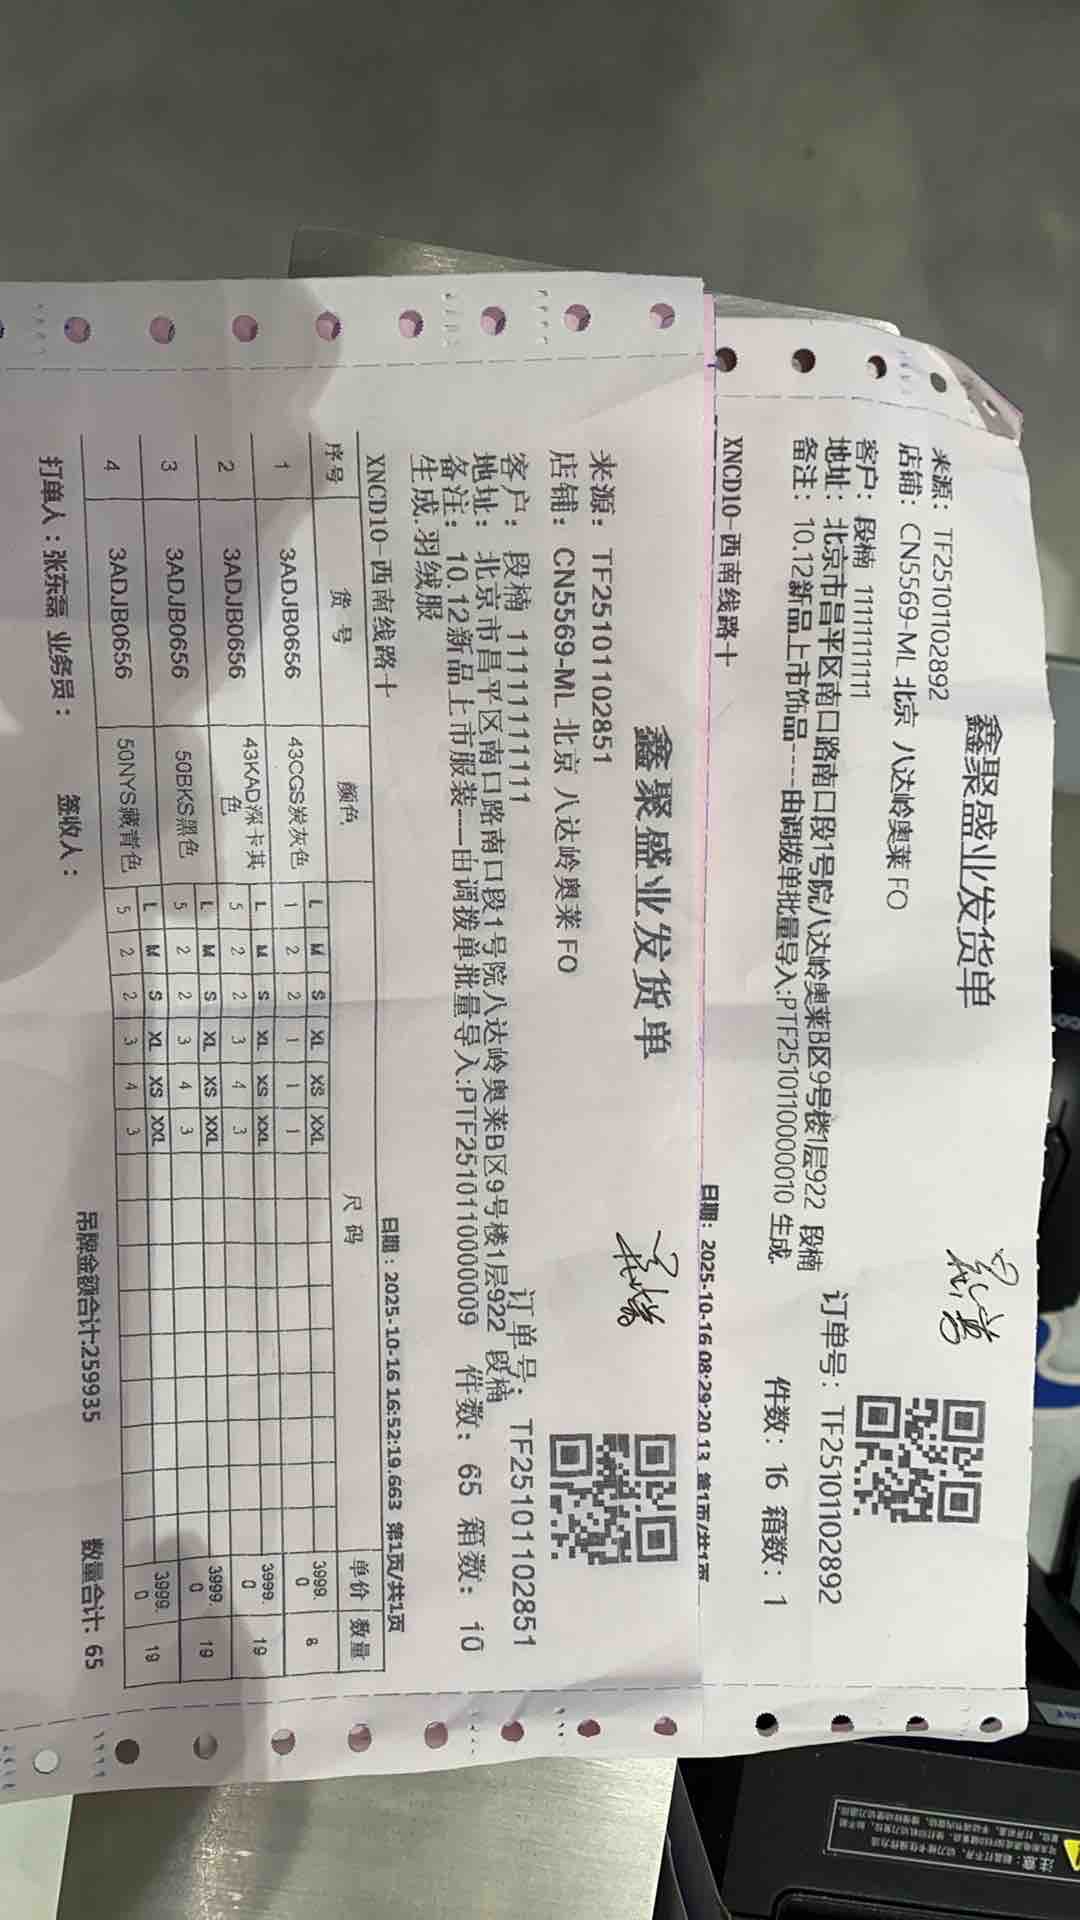 鑫聚盛业发货单
来源：TF251011102892
店铺：CN5569-ML 北京 八达岭奥莱 FO
订单号：TF251011102892
客户：段楠 11111111111
地址：北京市昌平区南口路南口段1号院八达岭奥莱B区9号楼1层922 段楠
备注：10.12新品上市饰品----由调拨单批量导入:PTF251011000010 生成.
件数：16 箱数：1
XNCD10-西南线路十
日期：2025-10-16 08:29:20.13 第1页/共1页
鑫聚盛业发货单
来源：TF251011102851
店铺：CN5569-ML 北京 八达岭奥莱 FO
订单号：TF251011102851
客户：段楠 11111111111
地址：北京市昌平区南口路南口段1号院八达岭奥莱B区9号楼1层922 段楠
备注：10.12新品上市服装----由调拨单批量导入:PTF251011000009 件数：65 箱数：10
生成.羽绒服
XNCD10-西南线路十
日期：2025-10-16 16:52:19.663 第1页/共1页
序号 货 号 颜色 尺 码 单价 数量
L M S XL XS XXL
1 3ADJB0656 43CGS炭灰色 1 2 2 1 1 1 3999.0 8
L M S XL XS XXL
2 3ADJB0656 43KAD深卡其色 5 2 2 3 4 3 3999.0 19
L M S XL XS XXL
3 3ADJB0656 50BKS黑色 5 2 2 3 4 3 3999.0 19
L M S XL XS XXL
4 3ADJB0656 50NYS藏青色 5 2 2 3 4 3 3999.0 19
吊牌金额合计:259935 数量合计: 65
打单人：张东磊 业务员： 签收人：